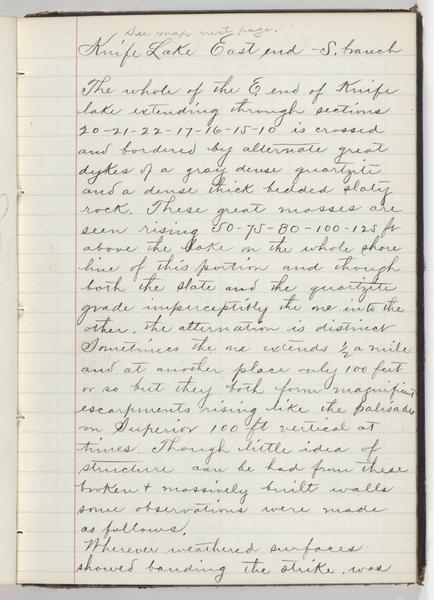 See map next page.
Knife Lake East end - S. branch
The whole of the E end of Knife
lake extending through sections
20-21-22-17-16-15-10 is crossed
and bordered by alternate great
dykes of a gray dense quartzite
and a dense thick bedded slaty
rock. These great masses are
seen rising 50-75-80-100-125 ft
above the lake on the whole shore
line of this portion and though
both the slate and the quartzite
grade imperceptibly the one into the
other, the alternation is distinct
Sometimes the one extends ½ a mile
and at another place only 100 feet
or so but they both form magnificent
escarpments rising like the palisades
on Superior 100 ft vertical at
times. Though little idea of
structure can be had from these
broken + massively built walls
some observations were made
as follows.
Wherever weathered surfaces
showed banding the strike was